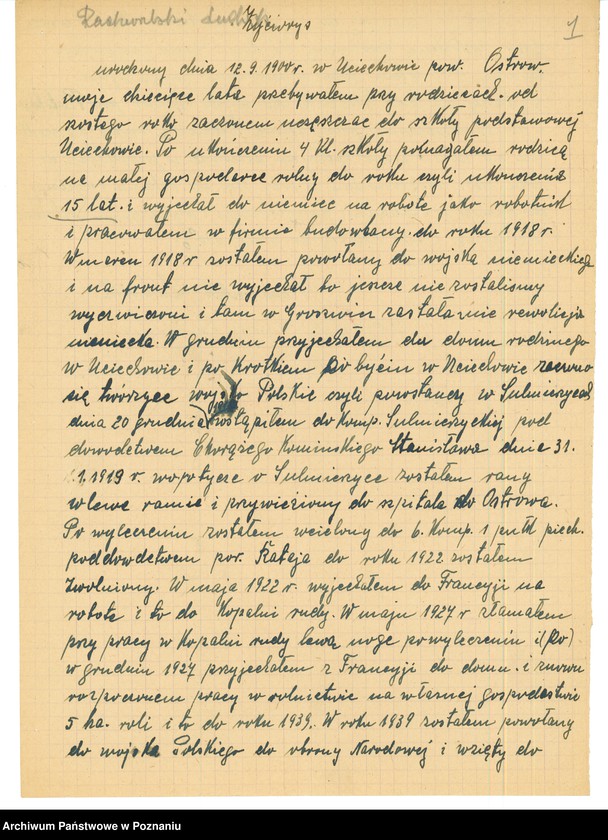 Życiorys 1
urodzony dnia 12.9.1900r. w Uciechowie pow. Ostrow.
moje dziecięce lata przebywałem przy rodzicach. od
szóstego roko zacząnem uczęszczac do szkoły podstawowej
Uciechowie. Po ukończeniu 4 kl. szkoły pomagałem rodzicą
na małej gospodarce rolny do roku czyli ukonczenia
15 lat. i wyjechał do niemiec na robote jako robotnik
i pracowałem w firmie budowlany. do roku 1918 r.
W marcu 1918 r zostałem powołany do wojska niemieckiego
i na front nie wyjechał bo jeszcze nie zostalismy
wyczwiczoni i tam w zastała mie rewolicja
niemiecka. W grudniu przyjechałem do domu rodzinego
w Uciechowie i po krotkiem pobyćiu w Uciechowie zaczeno
się tworzyce wojsko Polskie czyli powstancy w Sulmierzycach
dnia 20 grudnia wstąpiłem do Komp. Sulmierzyckiej pod
dowodztwem Chorążego Kominskiego Stanisława dnie 31.
1.1919 r. w potyczce o Sulmierzyce zostałem rany
w lewe ramie i przywieziony do szpitala do Ostrowa.
Po wyleczeniu zostałem wcielony do 6. Komp. 1 pułk piech.
pod dowodztwem por. Rataja do roku 1922 zostałem
zwolniony. W maja 1922 r. wyjechałem do Francyji na
robote i to do Kopalni rudy. W maju 1927 r złamałem
przy pracy w Kopalni rudy lewą noge po wyleczeniu i (po)
w grudniu 1927 przyjechałem z Francyji do domu. i znowu
rozpocząnem pracy w rolnictwie na własnej gospodarstwie
5 ha. roli i to do roku 1939. W roku 1939 zostałem powołany
do wojska Polskiego do obrony Narodowej i wzięty do
Archiwum Państwowe w Poznaniu